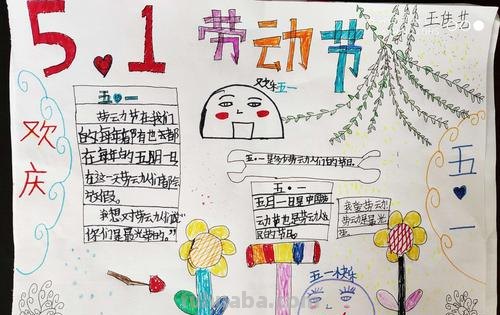 5.1
劳动节
王佳艺
欢庆
五一
欢乐五一
五一
劳动节在我们
的每年都有也去都
在每年的五月一日
在这一天劳动人们都会
放假。
我想对劳动人们说“
你们是最光荣的。”
五·一是全分劳动人们的节日。
五·一
五月一日是中国劳
动节也是劳动人
民的节日。
我爱劳动!
劳动是最光
五一快乐